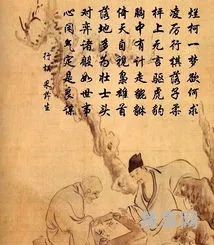 烂柯一梦欲何求
凌厉行棋落子柔
枰上无言驱虎豹
胸中有计走貔貅
倚天自视枭雄首
落地多为壮士头
对弈诸般如世事
心闲气定是良谋
行棋